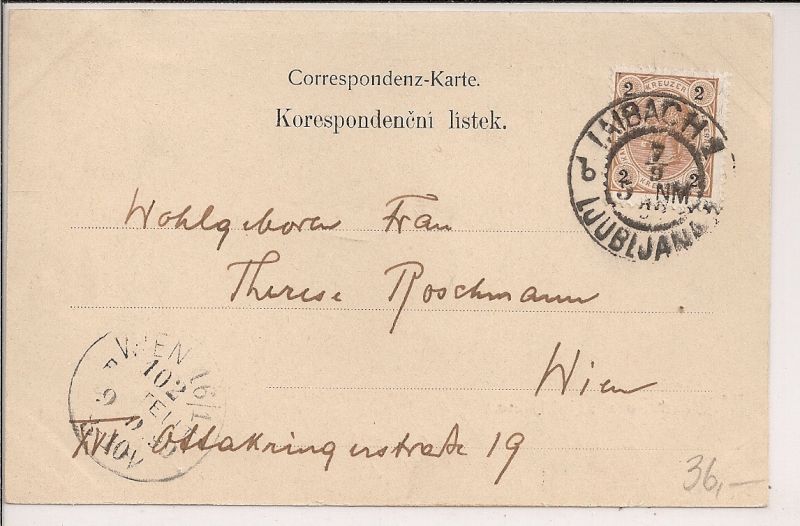 Correspondenz-Karte.
Korespondenční lístek.
2 KREUZER 2
2 2
LAIBACH 1
7
9
5 NM
LJUBLJANA
Wohlgeboren Frau
Therese Roschmann
Wien
XVI Ottakringerstraße 19
WIEN 16/1
102
9
36,—